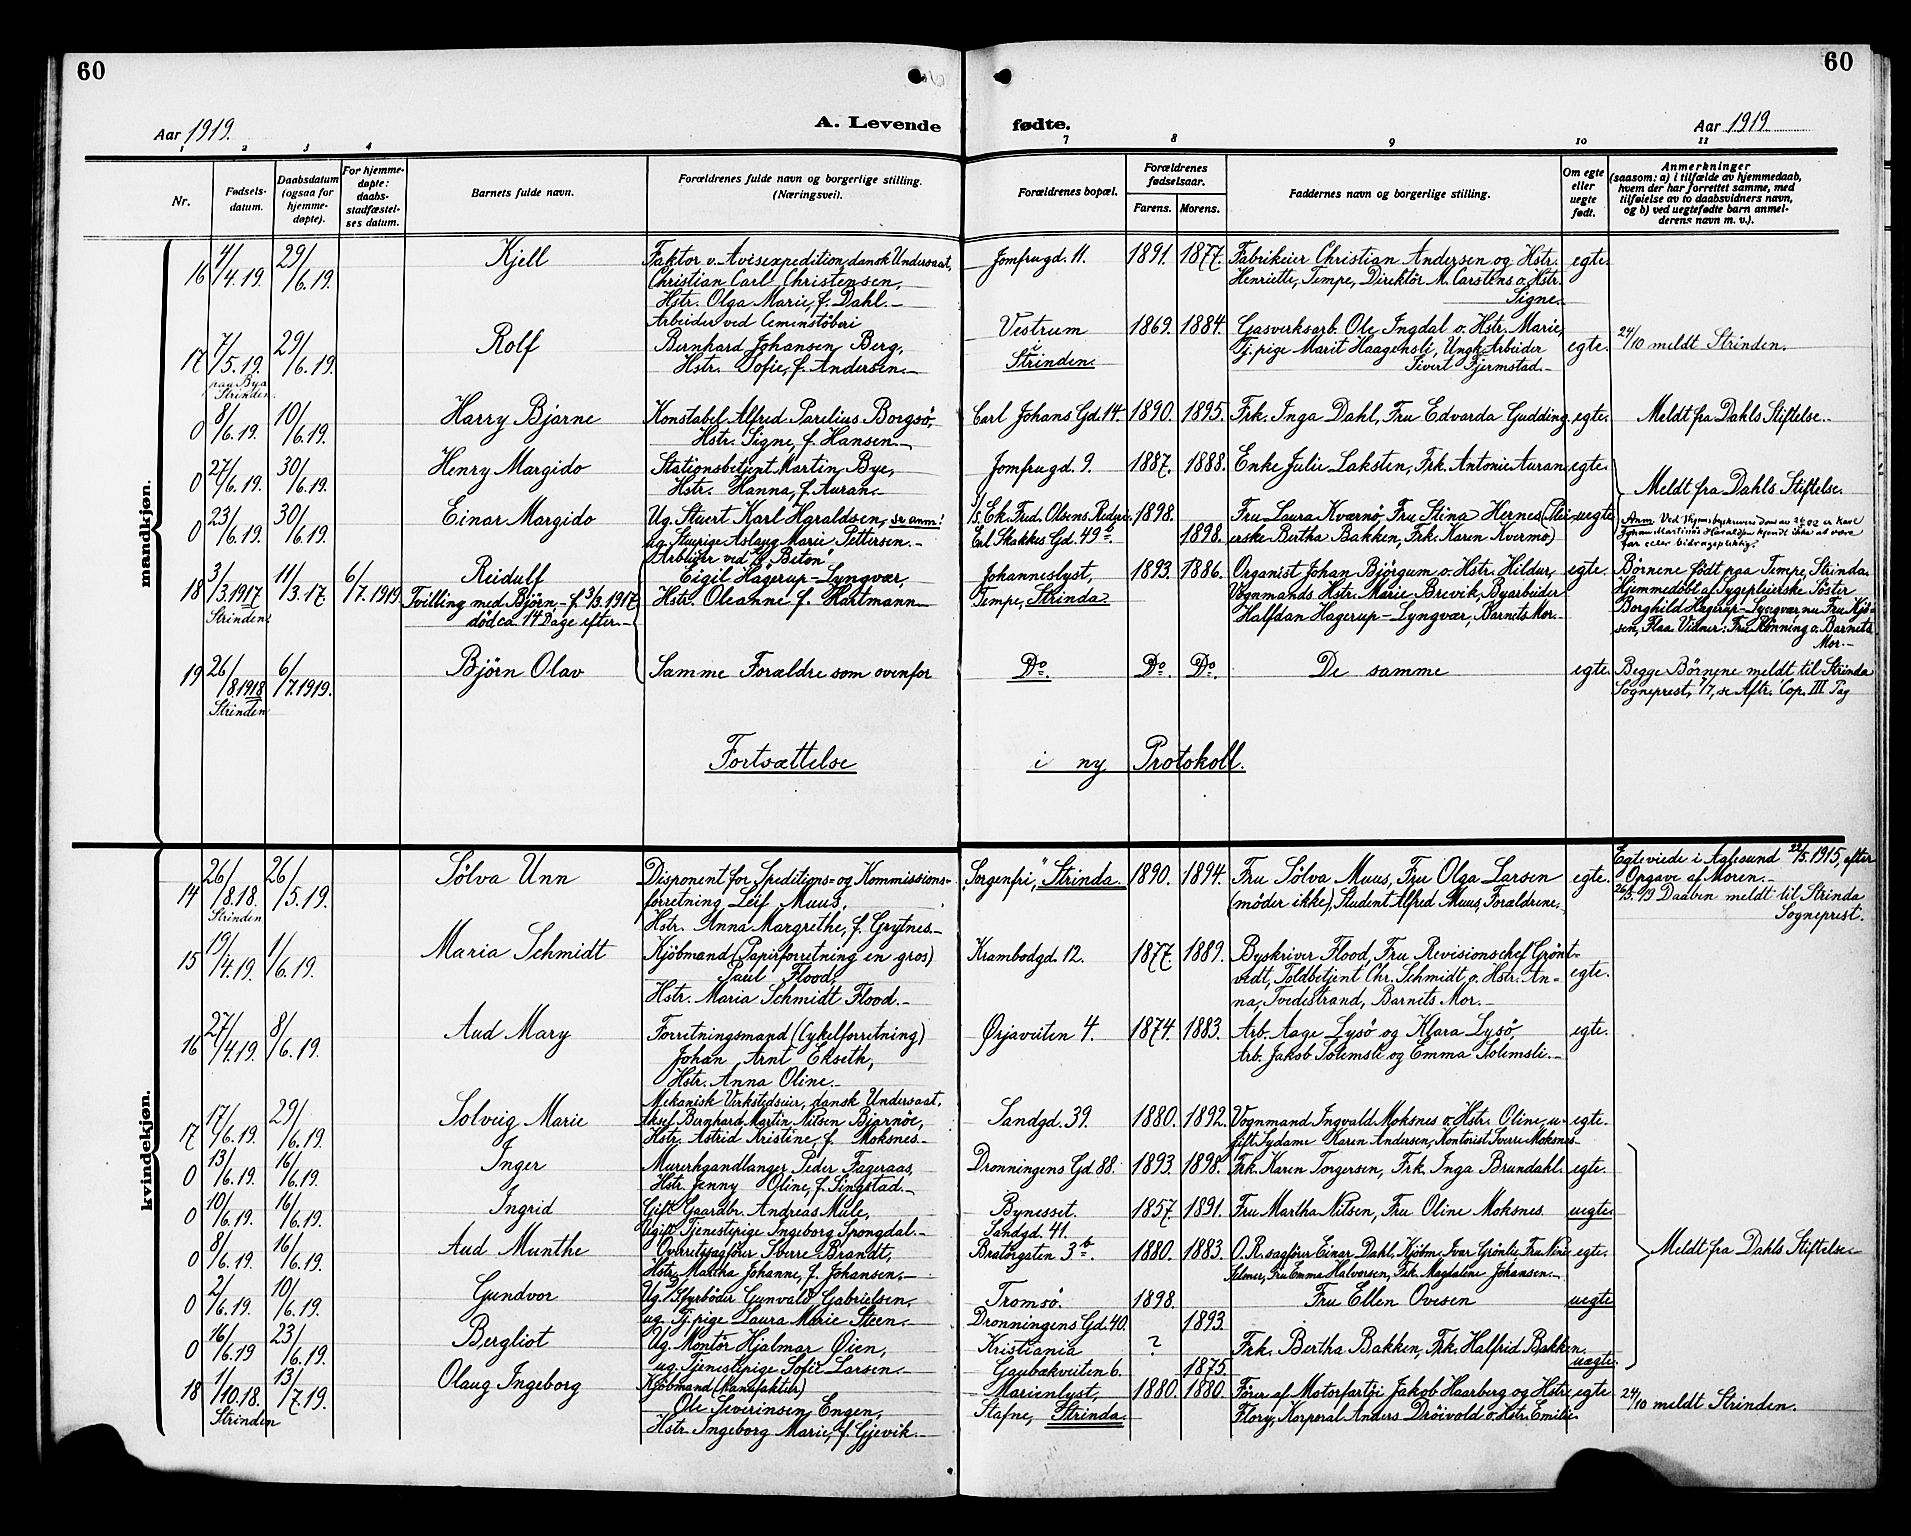 60
60
Aar 1919.
A. Levende
fødte.
Aar 1919
1 2 3 4
7 8 9 10 11
Nr.
Fødsels-
datum.
Daabsdatum
(ogsaa for
hjemme-
døpte).
For hjemme-
døpte:
daabs-
stadfæstel-
ses datum.
Barnets fulde navn.
Forældrenes fulde navn og borgerlige stilling.
(Næringsvei).
Forældrenes bopæl.
Forældrenes
fødselsaar.
Farens. Morens.
Faddernes navn og borgerlige stilling.
Om egte
eller
uegte
født.
Anmerkninger
(saasom: a) i tilfælde av hjemmedaab,
hvem der har forrettet samme, med
tilføielse av to daabsvidners navn,
og b) ved uegtefødte barn anmel-
derens navn m. v.).
mandkjøn.
16 4/4.19. 29/6.19. Kjell
Faktor v. Avisexpedition, dansk Undersaat,
Christian Carl Christensen,
Hstr. Olga Marie, f. Dahl.-
Jomfrugd. 11. 1891. 1877.
Fabrikeier Christian Andersen og Hstr.
Henriette, Tempe, Direktör M. Carstens o. Hstr.
Signe.
egte.
17 7/5.19. paa Bya Strinden. 29/6.19. Rolf
Arbeider ved Cemenstöberi
Bernhard Johansen Berg,
Hstr. Sofie, f. Andersen.-
Vestrum
i
Strinden.
1869. 1884.
Gasverksarb. Ole Ingdal o. Hstr. Marie,
Tj. pige Marit Haagensli, Ungk. Arbeider
Sivert Fjermstad.-
egte.
24/10 meldt Strinden.
0 8/6.19. 10/6.19. Harry Bjarne
Konstabel Alfred Parelius Borgsö,
Hstr. Signe, f. Hansen.-
Carl Johans Gd. 14. 1890. 1895.
Frk. Inga Dahl, Fru Edvarda Gudding
egte.
Meldt fra Dahls Stiftelse.
0 27/6.19. 30/6.19. Henry Margido
Stationsbetjent Martin Bye,
Hstr. Hanna, f. Auran.-
Jomfrugd. 9. 1887. 1888.
Enke Julie Laksten, Frk. Antonie Auran
egte.
Meldt fra Dahls Stiftelse.
0 23/6.19. 30/6.19. Einar Margido
Ug. Stuert Karl Haraldsen, se anm!
ug. Stuerige Aslaug Marie Pettersen.-
Fred. Olsens Rederi.
Erl. Skakkes Gd. 49b.
1898.
1898.
Fru Laura Kværnö, Fru Stina Hernes (Mei-
erske Bertha Bakken, Frk. Karen Kvermo)
uegte
18 3/3.1917 Strinden. 11/3.17 6/7.1919
Reidulf
Tvilling med Björn - f. 3/3.1917
död ca. 14 Dage efter.-
Arbeider ved "Beton"
Eigil Hagerup-Lyngvær,
Hstr. Oleanne f. Hartmann
Johanneslyst,
Tempe, Strinda.
1893. 1886.
Organist Johan Björgum o. Hstr. Hildur,
Vognmands Hstr. Marie Brevik, Byarbeider
Halfdan Hagerup-Lyngvær, Barnets Mor.-
egte.
Börnene födt paa Tempe, Strinda.
Hjemmedöbt af Sygepleierske Söster
Borghild Hagerup-Lyngvær, nu Fru Kjö-
sen, Flaa. Vidner: Fru Rönning o. Barnets
Mor.-
19 26/8.1918 Strinden 6/7.1919. Björn Olav
Samme Forældre som ovenfor
Do. Do. Do.
De samme
egte.
Begge Börnene meldt til Strinda
Sogneprest, 7/7, se Aftr. Cop. III Pag
Fortsættelse i ny Protokoll.
kvindekjøn.
14 26/8.18. Strinden 26/5.19. Sölva Unn
Disponent for Speditions- og Kommissions-
forretning Leif Muus,
Hstr. Anna Margrethe, f. Grytnes.-
"Sorgenfri," Strinda. 1890. 1894.
Fru Sölva Muus, Fru Olga Larsen
(möder ikke), Student Alfred Muus, Forældrene.
egte.
Egteviede i Aalesund 22/5.1915, efter
Opgave af Moren.-
26/5.19 Daaben meldt til Strinda
Sogneprest.
15 19/4.19. 1/6.19. Maria Schmidt
Kjöbmand (Papirforretning en gros)
Paul Flood,
Hstr. Maria Schmidt Flood.-
Krambodgd. 12. 1877. 1889.
Byskriver Flood, Fru Revisionschef Grönt-
vedt, Toldbetjent Chr. Schmidt o. Hstr. An-
na, Tvedestrand, Barnets Mor.-
egte.
16 27/4.19. 8/6.19. Aud Mary
Forretningsmand (Cykelforretning)
Johan Arnt Ekseth,
Hstr. Anna Oline.-
Ørjaveiten 4. 1874. 1883.
Arb. Aage Lysö og Klara Lysö,
Arb. Jakob Solemsli og Emma Solemsli.-
egte.
17 17/6.19. 29/6.19. Solveig Marie
Mekanisk Verkstedseier, dansk Undersaat,
Aksel Bernhard Martin Nilsen Bjarnöe,
Hstr. Astrid Kristine, f. Moksnes-
Sandgd. 39. 1880. 1892.
Vognmand Ingvald Moksnes o. Hstr. Oline, u-
gift Sydame Karen Andersen, Kontorist Sverre Moksnes-
egte.
0 13/6.19. 16/6.19. Inger
Murerhaandlanger Peder Fageraas,
Hstr. Jenny Oline, f. Singstad.-
Dronningens Gd. 88. 1893. 1898.
Frk. Karen Torgersen, Frk. Inga Brundahl.
egte.
0 10/6.19. 16/6.19. Ingrid
Gift Gaardbr. Andreas Mule,
Ugift Tjenestepige Ingeborg Spongdal.-
Bynesset.
Sandgd. 41.
1857. 1891.
Fru Martha Nilsen, Fru Oline Moksnes
uegte
0 8/6.19. 16/6.19. Aud Munthe
Overretssagförer Sverre Brandt,
Hstr. Martha Johanne, f. Johansen.-
Bratörgaten 3b. 1880. 1883.
O. R. sagförer Einar Dahl, Kjöbm. Ivar Grönlie, Fru Nini
Selmer, Fru Emma Halvorsen, Frk. Magdaline Johansen.-
egte.
Meldt fra Dahls Stiftelse
0 2/6.19. 10/6.19. Gundvor
Ug. Styrböder Gunvald Gabrielsen,
ug. Tj. pige Laura Marie Steen.-
Tromsö.
Dronningens Gd. 40.
1898.
1893.
Fru Ellen Ovesen
uegte
0 16/6.19 23/6.19. Bergliot
Ug. Montör Hjalmar Öien,
ug. Tjenestepige Sofie Larsen.-
Kristiania
Gaubækveiten 6.
?
1875.
Frk. Bertha Bakken, Frk. Halfrid Bakken.
uegte.
18 1/10.18. Strinden 13/7.19. Olaug Ingeborg
Kjöbmand (Manufaktur)
Ole Severinsen Engen,
Hstr. Ingeborg Marie, f. Gjevik.-
Marienlyst,
Stafne, Strinda.
1880. 1880.
Förer af Motorfartöi Jakob Haarberg og Hstr.
Flory, Korporal Anders Dröivold o. Hstr. Emilie.
egte
24/10 meldt Strinden.